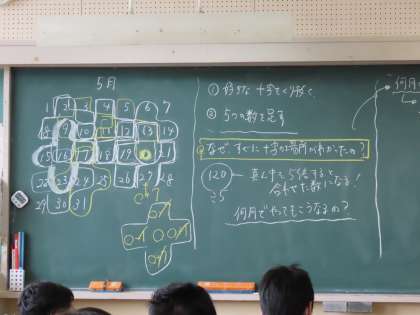 5月
1 2 3 4 5 6 7
8 9 10 11 12 13 14
15 16 17 18 19 20 21
22 23 24 25 26 27 28
29 30 31
① 好きな十字でくり抜く
② 5つの数を足す
なぜ、すぐに十字の場所がわかったの?
120
真ん中を5倍すると
合わせた数になる!
÷5
何月でやってもこうなるの?
何月